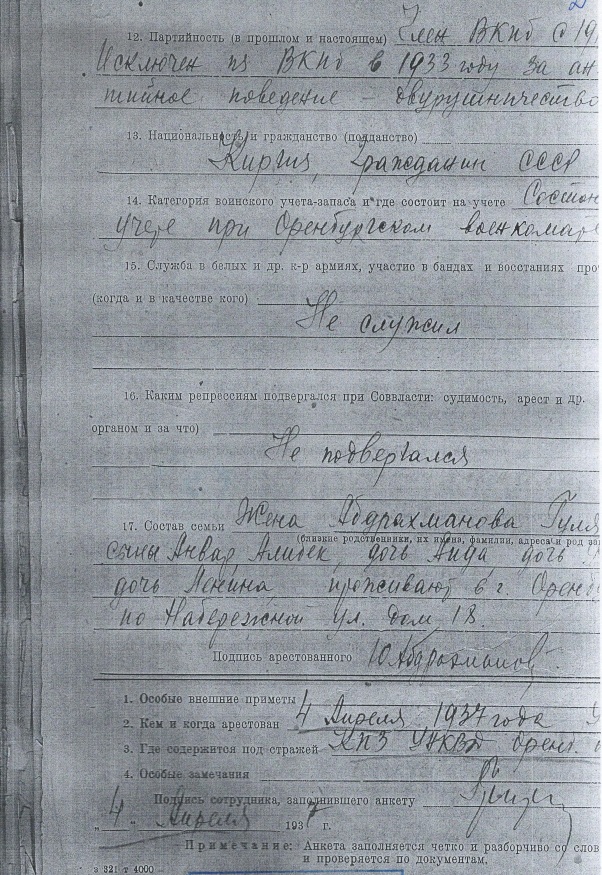 12. Партийность (в прошлом и настоящем) Член ВКПб с 19
Исключен из ВКПб в 1933 году за ан
тийное поведение – двурушничество
13. Национальность и гражданство (подданство)
Киргиз, Гражданин СССР
14. Категория воинского учета-запаса и где состоит на учете Состои
учете при Оренбургском военкомате
15. Служба в белых и др. к-р армиях, участие в бандах и восстаниях про
(когда и в качестве кого)
Не служил
16. Каким репрессиям подвергался при Соввласти: судимость, арест и др.
органом и за что)
Не подвергался
17. Состав семьи Жена Абдрахманова Гуля
(близкие родственники, их имена, фамилии, адреса и род за
сыны Анвар, Алибек, дочь Аида, дочь
дочь Ленина проживают в г. Оренб
по Набережной ул. дом 18.
Подпись арестованного Ю Абдрахманов
1. Особые внешние приметы
2. Кем и когда арестован 4 Апреля 1937 года У
3. Где содержится под стражей КПЗ УНКВД Оренб.
4. Особые замечания
Подпись сотрудника, заполнившего анкету
„ 4 " Апреля 1937 г.
Примечание: Анкета заполняется четко и разборчиво со слов
и проверяется по документам.
в 321 т 4000